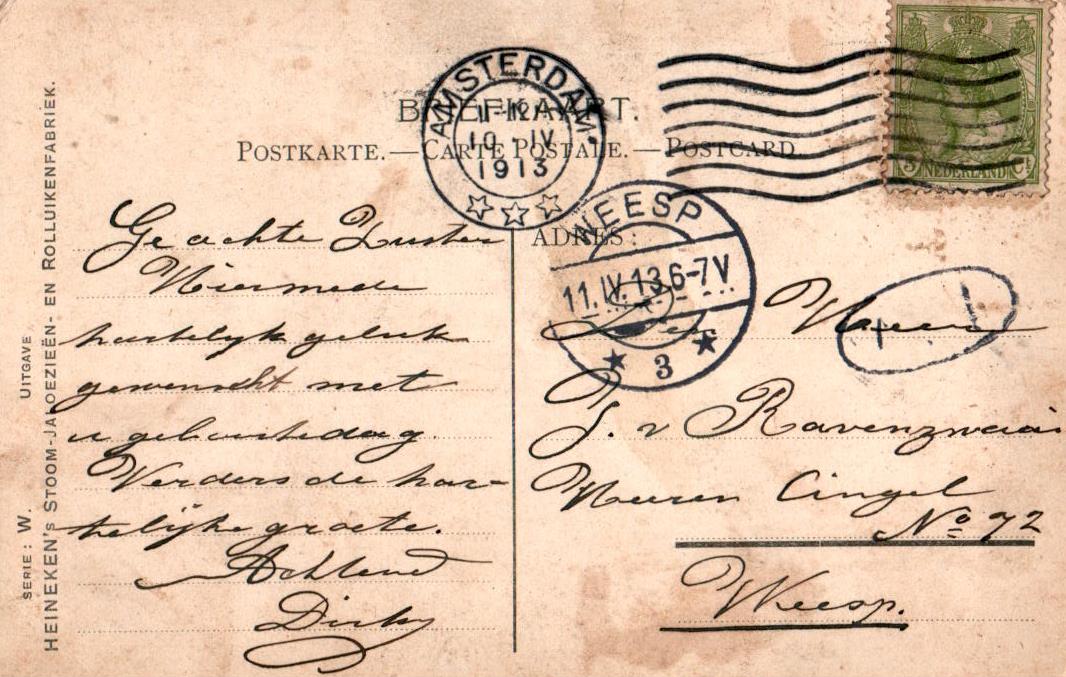 BRIEFKAART.
POSTKARTE. — CARTE POSTALE. — POSTCARD
AMSTERDAM
11-12
10 · IV
1913
NEDERLAND
WEESP
11.IV.13 6-7V
3
SERIE: W. UITGAVE
HEINEKEN's STOOM-JALOEZIEËN- EN ROLLUIKENFABRIEK.
Geachte Zuster
Hiermede
hartelijk geluk
gewenscht met
u geboortedag.
Verders de har-
telijke groete.
Achtend
Dirk
ADRES:
Heer
J. v Ravenzwaai
Heeren Cingel
No 72
Weesp.